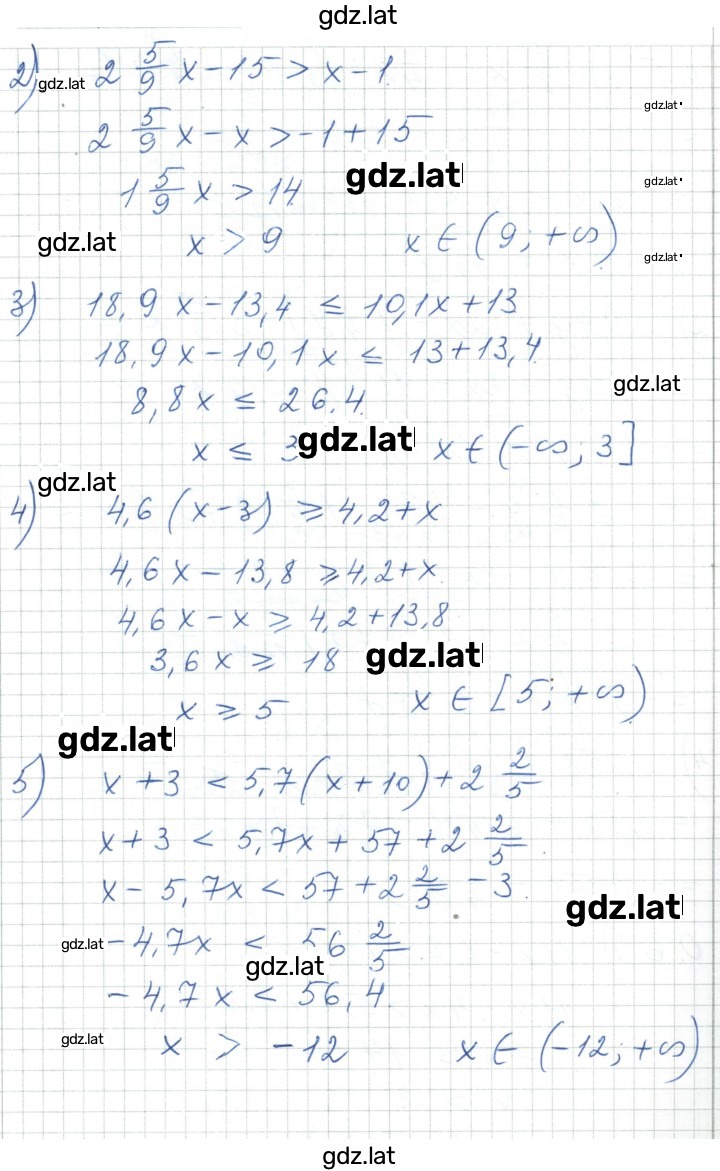 gdz.lat
2) gdz.lat 2 5/9 x - 15 > x - 1
gdz.lat
2 5/9 x - x > -1 + 15
1 5/9 x > 14 gdz.lat gdz.lat
gdz.lat x > 9 x ∈ (9; +∞) gdz.lat
3) 18,9x - 13,4 ≤ 10,1x + 13
18,9x - 10,1x ≤ 13 + 13,4
gdz.lat
8,8x ≤ 26,4
x ≤ 3 gdz.lat x ∈ (-∞; 3]
gdz.lat
4) 4,6(x - 3) ≥ 4,2 + x
4,6x - 13,8 ≥ 4,2 + x
4,6x - x ≥ 4,2 + 13,8
3,6x ≥ 18 gdz.lat
x ≥ 5 x ∈ [5; +∞)
gdz.lat
5) x + 3 < 5,7(x + 10) + 2 2/5
x + 3 < 5,7x + 57 + 2 2/5
x - 5,7x < 57 + 2 2/5 - 3
gdz.lat
gdz.lat -4,7x < 56 2/5
gdz.lat
-4,7x < 56,4
gdz.lat x > -12 x ∈ (-12; +∞)
gdz.lat